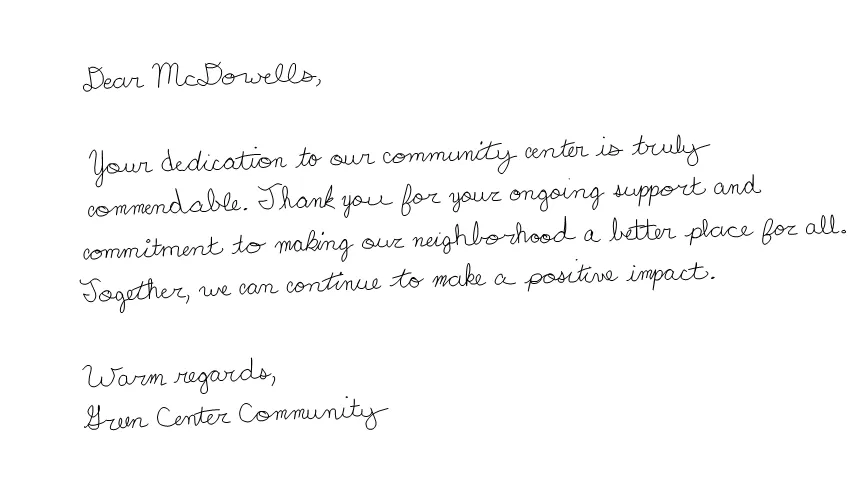 Dear McDowells,
Your dedication to our community center is truly
commendable. Thank you for your ongoing support and
commitment to making our neighborhood a better place for all.
Together, we can continue to make a positive impact.
Warm regards,
Green Center Community